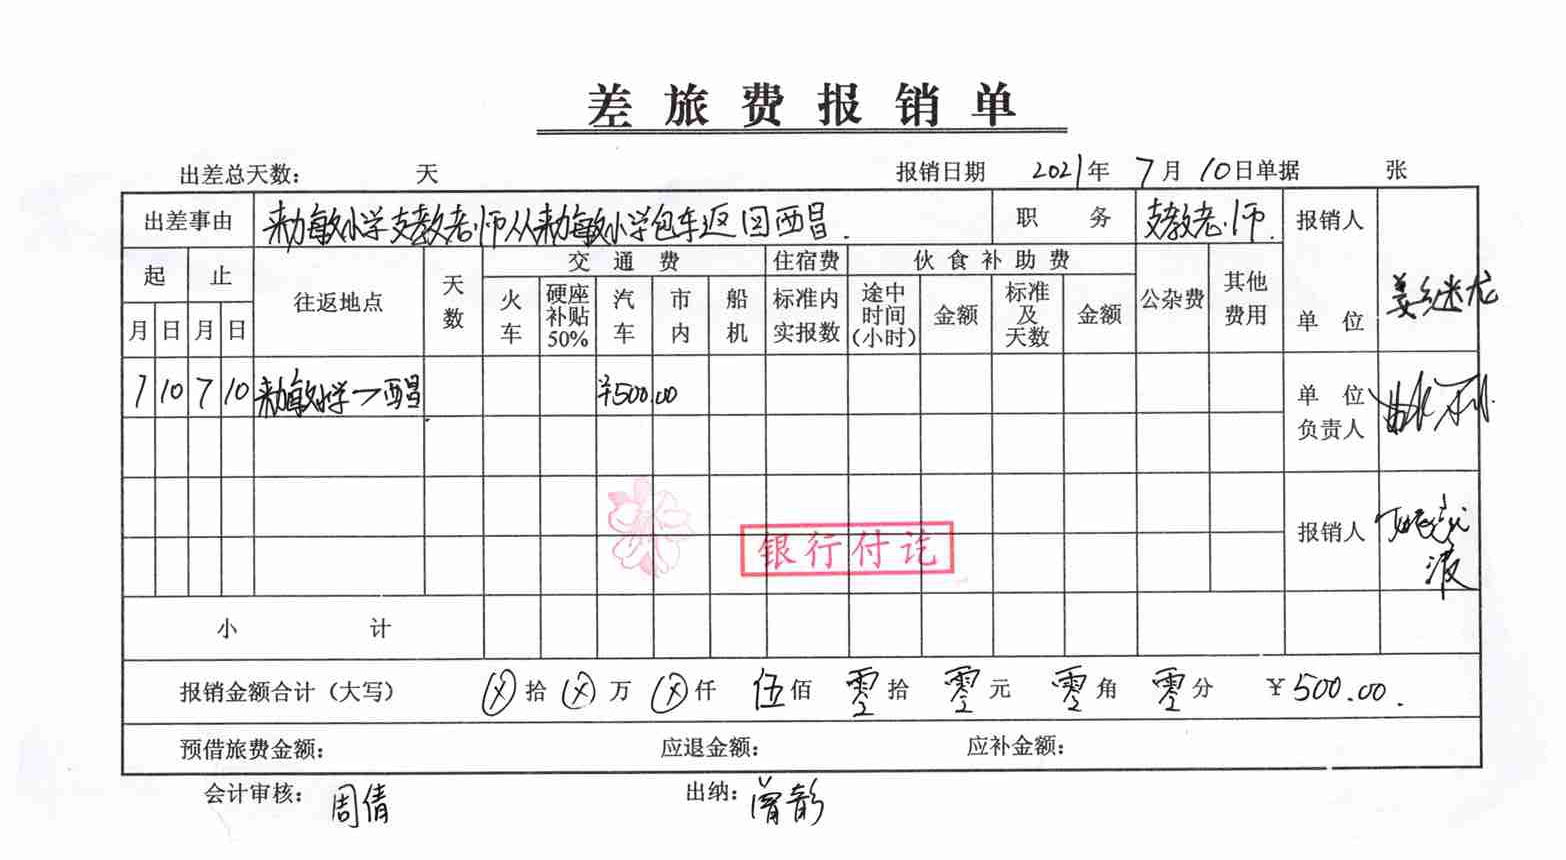 差旅费报销单
出差总天数： 天 报销日期 2021年 7月 10日单据 张
出差事由 勑敏小学支教老师从勑敏小学包车返回西昌. 职务 支教老师. 报销人
起 止 往返地点 天数 交通费 住宿费 伙食补助费 公杂费 其他费用
月 日 月 日 火车 硬座补贴50% 汽车 市内 船机 标准内实报数 途中时间(小时) 金额 标准及天数 金额 单位
7 10 7 10 勑敏小学→西昌 ¥500.00 单位负责人
银行付讫
报销人
小计
报销金额合计（大写） ⊗拾 ⊗万 ⊗仟 伍佰 零拾 零元 零角 零分 ¥500.00.
预借旅费金额： 应退金额： 应补金额：
会计审核：周倩 出纳：